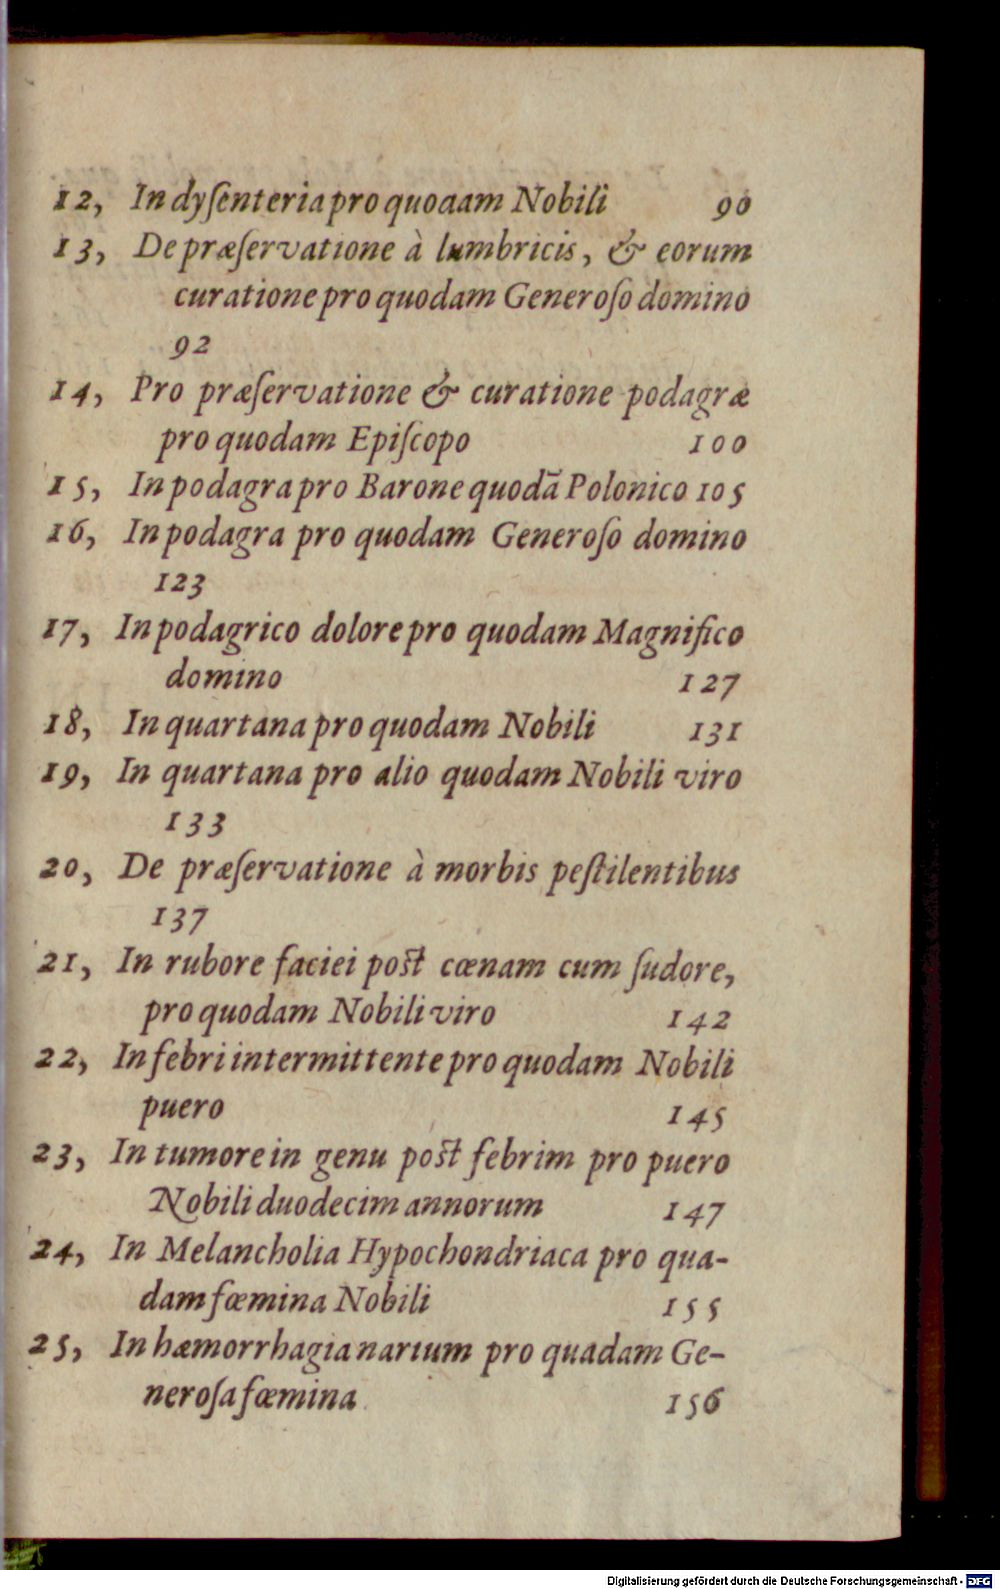 12, In dyſenteria pro quodam Nobili 90
13, De præſervatione à lumbricis, & eorum
curatione pro quodam Generoſo domino
92
14, Pro præſervatione & curatione podagræ
pro quodam Epiſcopo 100
15, In podagra pro Barone quodã Polonico 105
16, In podagra pro quodam Generoſo domino
123
17, In podagrico dolore pro quodam Magnifico
domino 127
18, In quartana pro quodam Nobili 131
19, In quartana pro alio quodam Nobili viro
133
20, De præſervatione à morbis peſtilentibus
137
21, In rubore faciei poſt cœnam cum ſudore,
pro quodam Nobili viro 142
22, In febri intermittente pro quodam Nobili
puero 145
23, In tumore in genu poſt febrim pro puero
Nobili duodecim annorum 147
24, In Melancholia Hypochondriaca pro qua-
dam fœmina Nobili 155
25, In hæmorrhagia narium pro quadam Ge-
neroſa fœmina 156
Digitalisierung gefördert durch die Deutsche Forschungsgemeinschaft - DFG